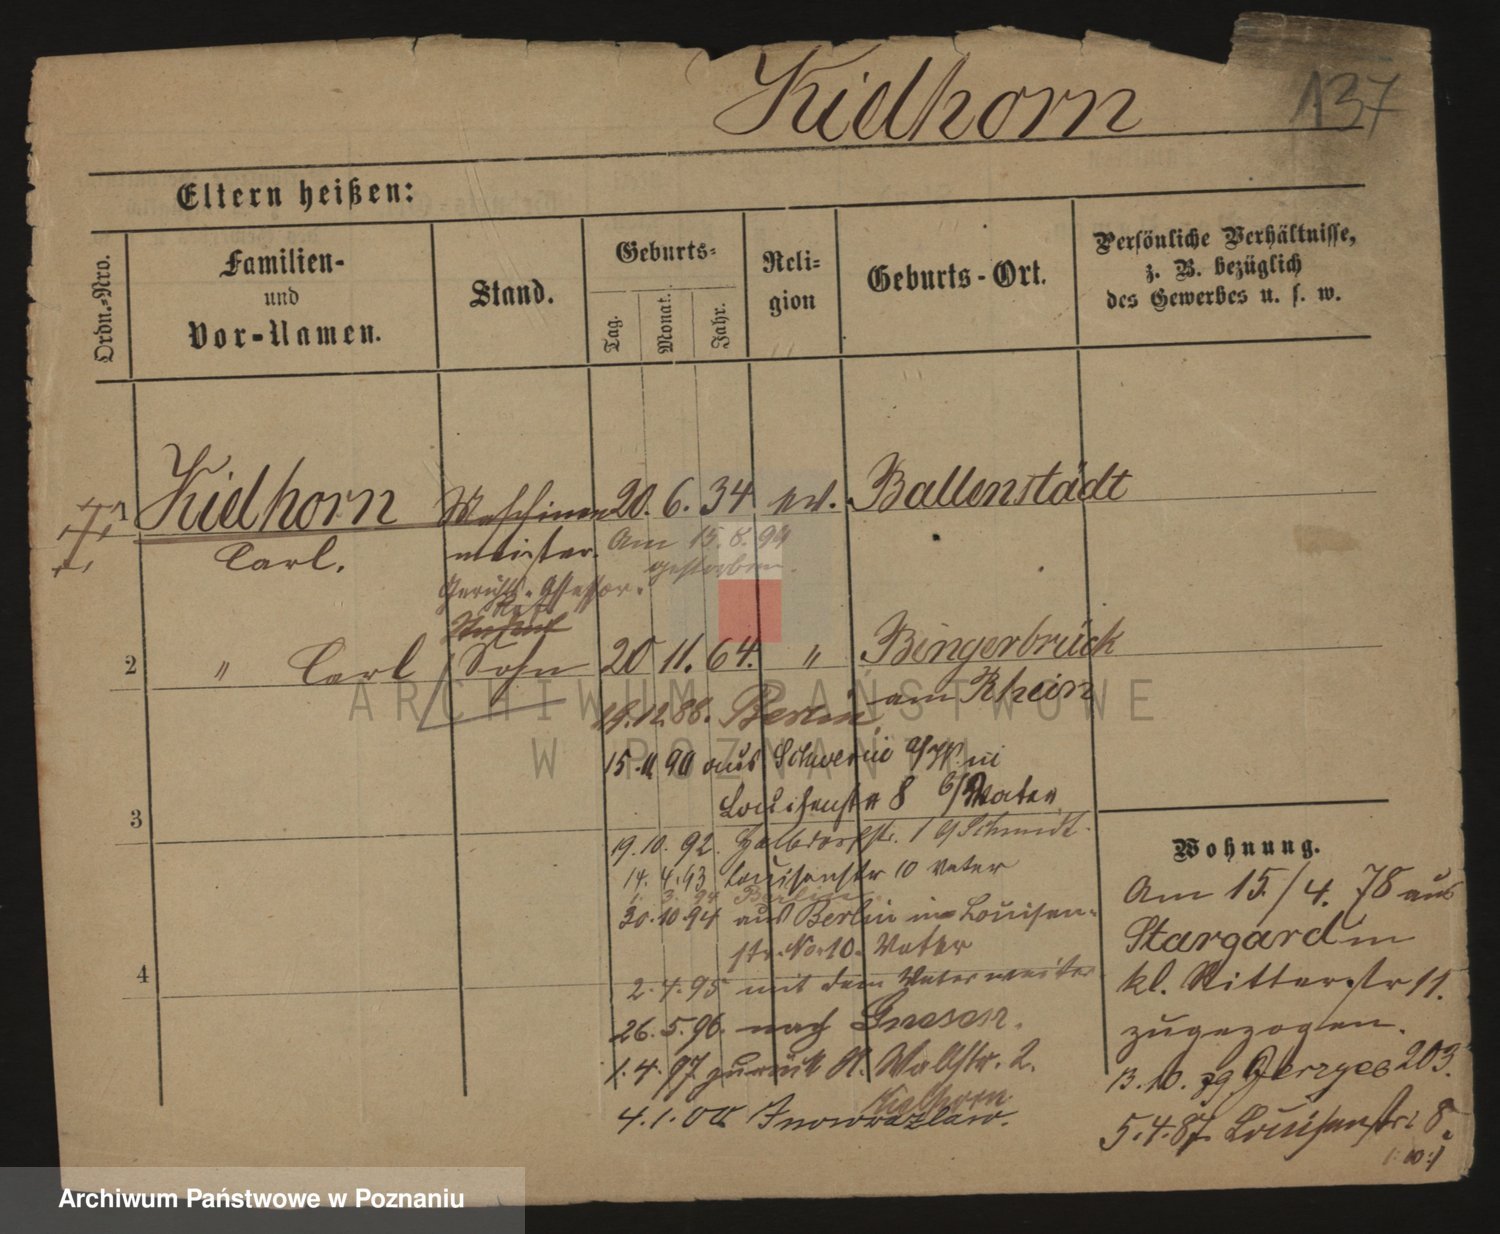 Kielhorn
137
Eltern heißen:
Ordn.-Nro.
Familien-
und
Vor-Namen.
Stand.
Geburts-
Tag.
Monat.
Jahr.
Reli-
gion
Geburts-Ort.
Persönliche Verhältnisse,
z. B. bezüglich
des Gewerbes u. s. w.
1 Kielhorn Maschinen 20. 6. 34 ev. Ballenstädt
Carl. meister. Am 15.8.94
gestorben.
Gerichts-Assessor.
2 " Carl Sohn 20 11. 64. " Bingerbrück
am Rhein
19.12.88. Berlin
15.11 90 aus Schwerin a/W. in
Louisenstr 8 b/Vater
3
19. 10. 92. Halbdorfstr. 1 Schmidt.
14. 4. 93 Louisenstr 10 Vater
1. 3. 94 Berlin
30. 10. 94 aus Berlin in Louisen-
str. No 10. Vater
4
2. 4. 95 mit dem Vater weiter
26. 5. 96. nach Gnesen.
1. 4. 97 zurück N. Wallstr. 2.
Kielhorn
4. 1. 00 Inowrazlaw.
Wohnung.
Am 15./4. 78 aus
Stargard in
kl. Ritterstr 11.
zugezogen.
13. 10. 79 Jerzyce 203.
5. 4. 87 Louisenstr 8.
ARCHIWUM PAŃSTWOWE
W POZNANIU
Archiwum Państwowe w Poznaniu